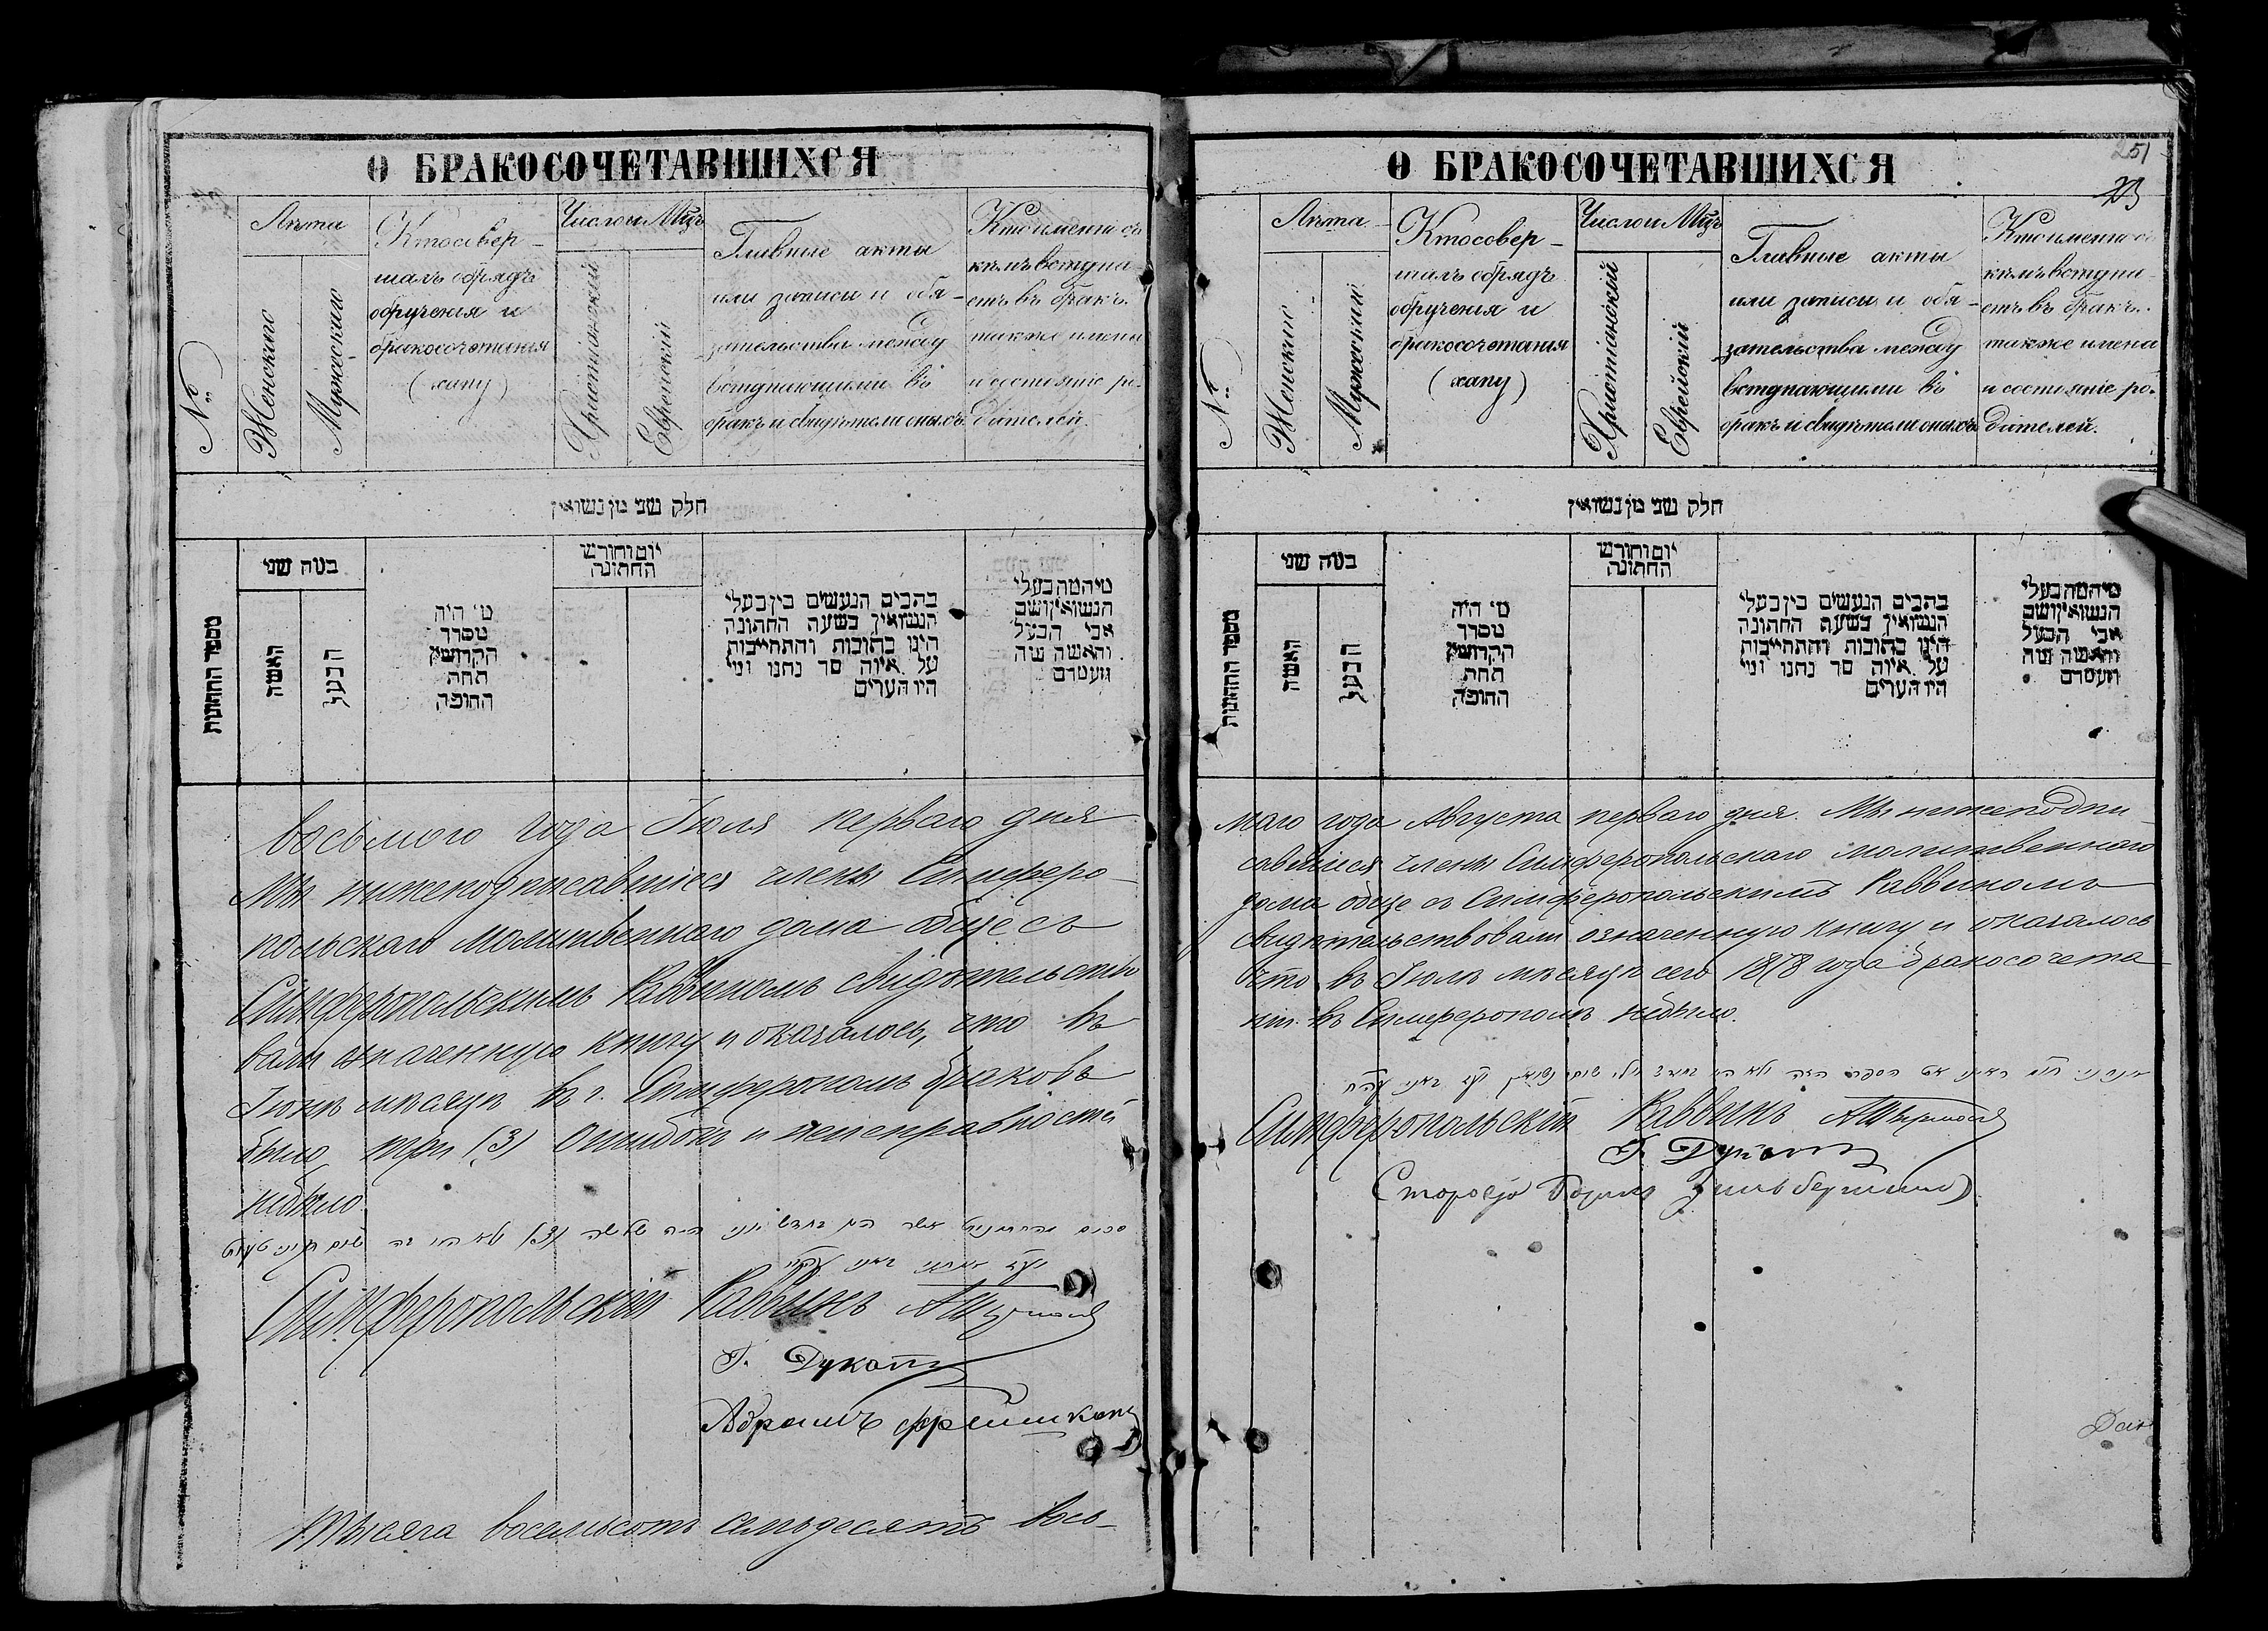 О БРАКОСОЧЕТАВШИХСЯ
№
Лѣта
Женскаго
Мужескаго
Кто совер-
шалъ обрядъ
обрученія и
бракосочетанія
(хапу)
Число и Мцъ
Христіанскій
Еврейскій
Главные акты
или записи и обя-
зательства между
вступающими въ
бракъ и свидѣтели оныхъ
Кто именно съ
кѣмъ вступа-
етъ въ бракъ.
также имена
и состояніе ро-
дителей.
חלק שני מן נשואין
מספר החתונות
במה שני
האשה
הבעל
מי היה
מסדר
הקדושין
תחת
החופה
יום וחודש
החתונה
בתבים הנעשים בין בעלי
הנשואין בשעת החתונה
היינו כתובות והתחייבות
על איזה סך נתנו ומי
היו העדים
מי המה בעלי
הנשואין ושם
אבי הבעל
והאשה מה
מעמדם
восьмого года Іюля перваго дня
Мы нижеподписавшіеся члены Симферо-
польскаго молитвеннаго дома обще съ
Симферопольскимъ Раввиномъ свидѣтельство
вали означенную книгу и оказалось, что въ
Іюнѣ мѣсяцѣ въ г. Симферополѣ браковъ
было три (3) Ошибокъ и неисправностей
небыло.
(3)
Симферопольскій Раввинъ
Г. Дукатъ
Абрамъ
Тысяча восемьсотъ семьдесятъ вось-
О БРАКОСОЧЕТАВШИХСЯ
251
№
Лѣта
Женскаго
Мужескаго
Кто совер-
шалъ обрядъ
обрученія и
бракосочетанія
(хапу)
Число и Мцъ
Христіанскій
Еврейскій
Главные акты
или записи и обя-
зательства между
вступающими въ
бракъ и свидѣтели оныхъ
Кто именно съ
кѣмъ вступа-
етъ въ бракъ.
также имена
и состояніе ро-
дителей.
חלק שני מן נשואין
מספר החתונות
במה שני
האשה
הבעל
מי היה
מסדר
הקדושין
תחת
החופה
יום וחודש
החתונה
בתבים הנעשים בין בעלי
הנשואין בשעת החתונה
היינו כתובות והתחייבות
על איזה סך נתנו ומי
היו העדים
מי המה בעלי
הנשואין ושם
אבי הבעל
והאשה מה
מעמדם
маго года Августа перваго дня. Мы нижеподпи-
савшіеся члены Симферопольскаго молитвеннаго
дома обще съ Симферопольскимъ Раввиномъ
свидѣтельствовали означенную книгу и оказалось
что въ Іюлѣ мѣсяцѣ сего 1878 года бракосочета-
ній въ Симферополѣ небыло.
Симферопольскій Раввинъ
Г. Дукатъ